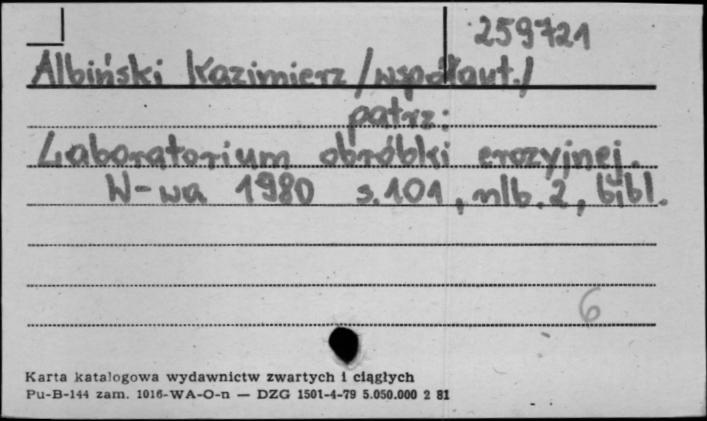 259721
Albiński Kazimierz /współaut./
patrz:
Laboratorium obróbki erozyjnej.
W-wa 1980 s.101, nlb. 2, bibl.
6
Karta katalogowa wydawnictw zwartych i ciągłych
Pu-B-144 zam. 1016-WA-O-n — DZG 1501-4-79 5.050.000 2 81